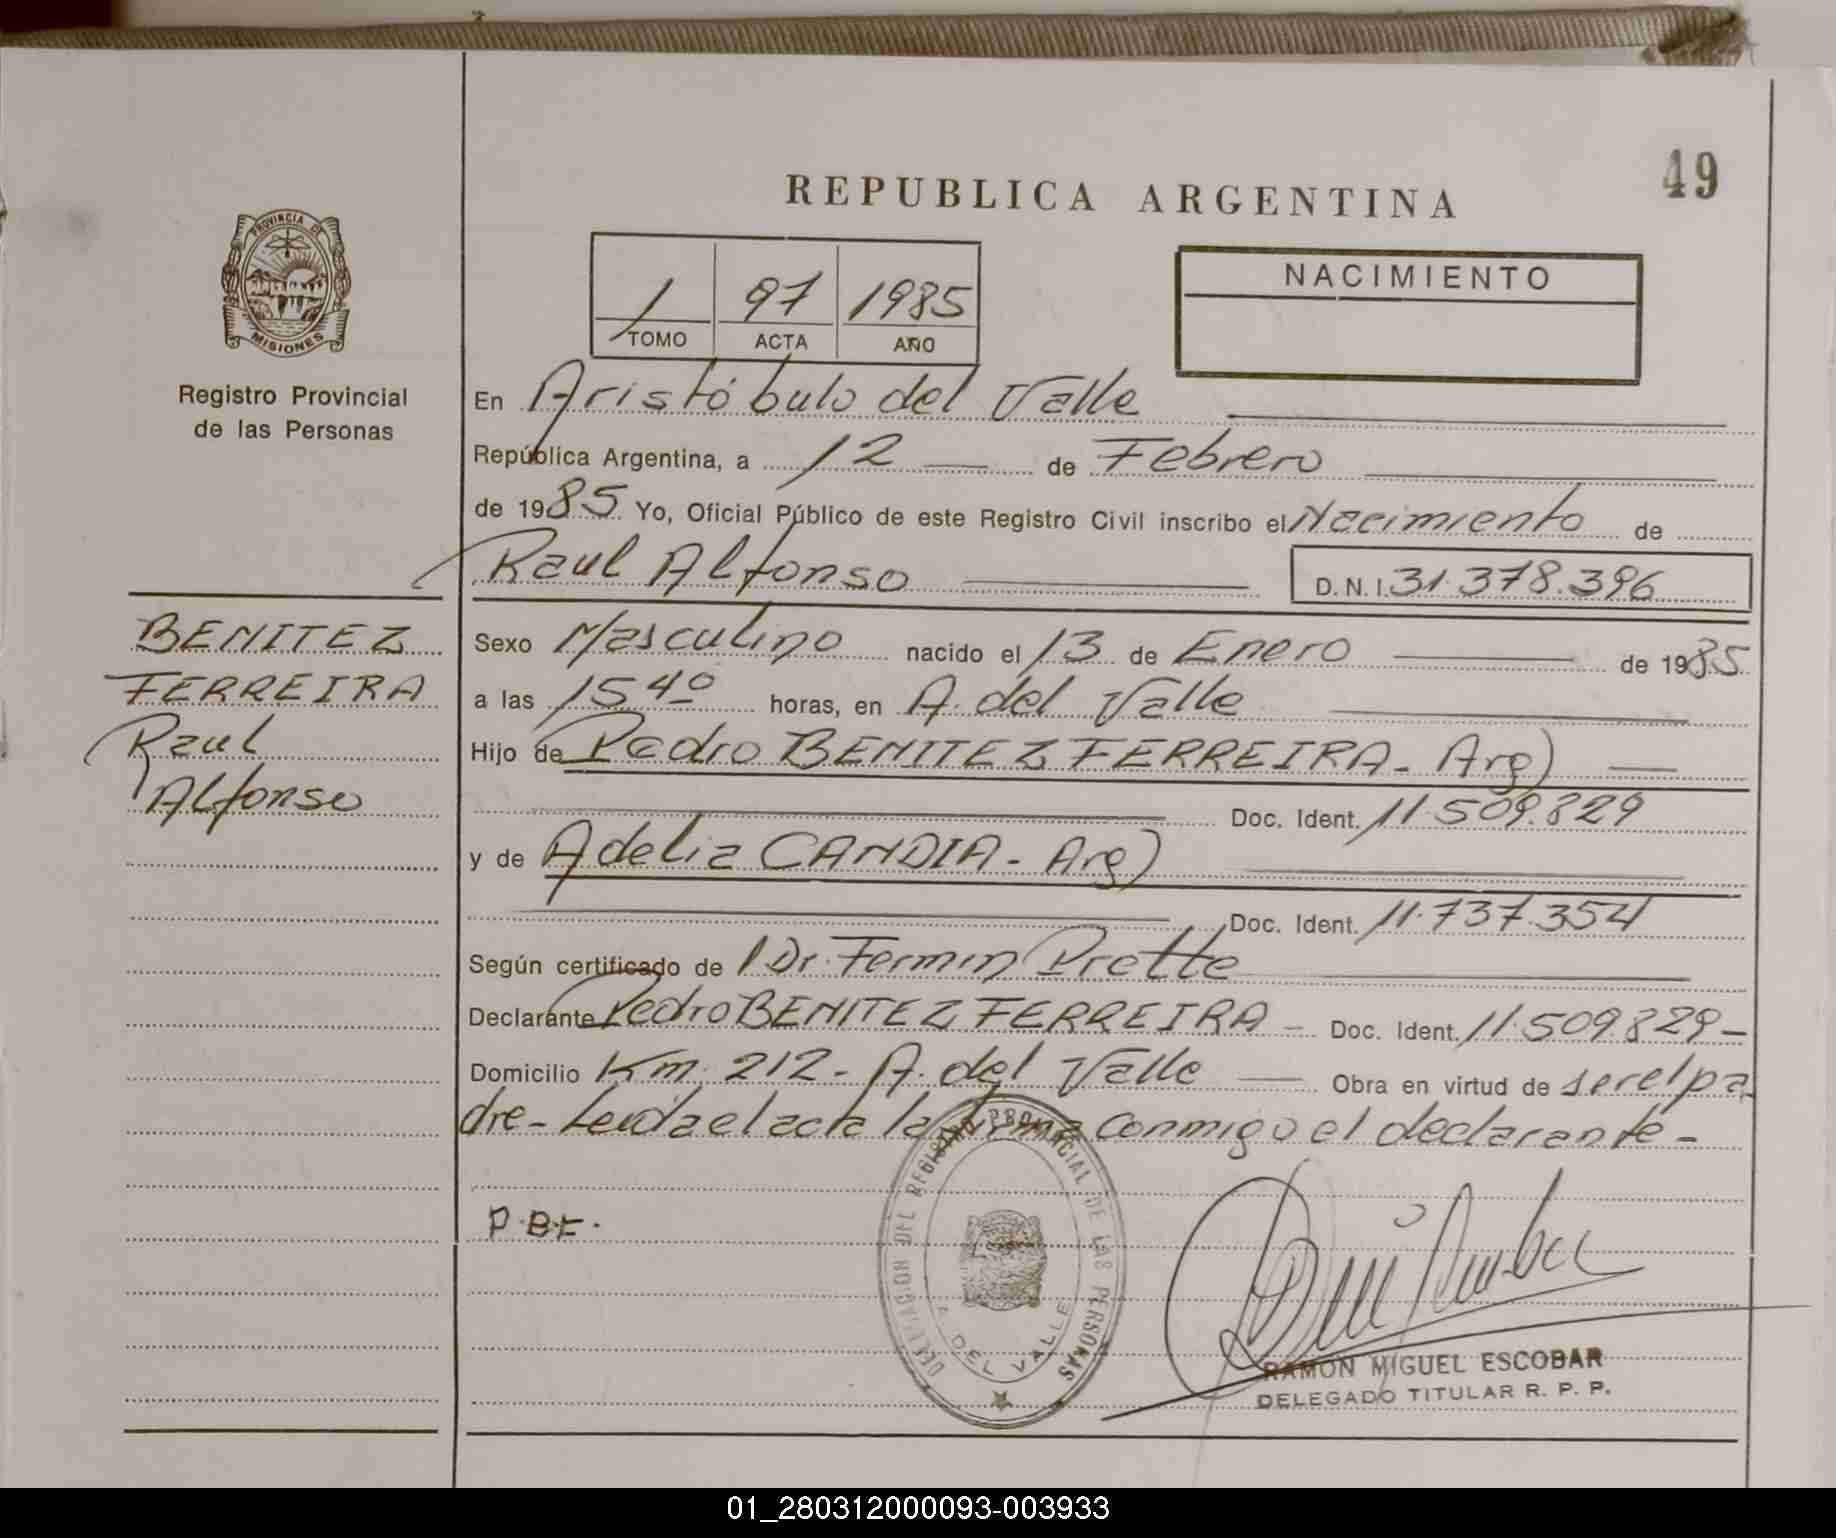 49
REPUBLICA ARGENTINA
PROVINCIA DE
MISIONES
1 97 1985
TOMO ACTA AÑO
NACIMIENTO
Registro Provincial
de las Personas
En Aristóbulo del Valle
República Argentina, a 12 de Febrero
de 1985 Yo, Oficial Público de este Registro Civil inscribo el Nacimiento de
Raul Alfonso D.N.I. 31.378.396
BENITEZ
FERREIRA
Raul
Alfonso
Sexo Masculino nacido el 13 de Enero de 1985
a las 15 40 horas, en A. del Valle
Hijo de Pedro BENITEZ FERREIRA - Arg)
Doc. Ident. 11.509.829
y de Adelia CANDIA - Arg)
Doc. Ident. 11.737.354
Según certificado de Dr. Fermin Prette
Declarante Pedro BENITEZ FERREIRA - Doc. Ident. 11.509.829 -
Domicilio Km. 212 - A. del Valle Obra en virtud de ser el pa
dre - Leida el acta la firma conmigo el declarante -
P.B.F.
DELEGACION DEL REGISTRO PROVINCIAL DE LAS PERSONAS
A. DEL VALLE
RAMON MIGUEL ESCOBAR
DELEGADO TITULAR R. P. P.
01_280312000093-003933